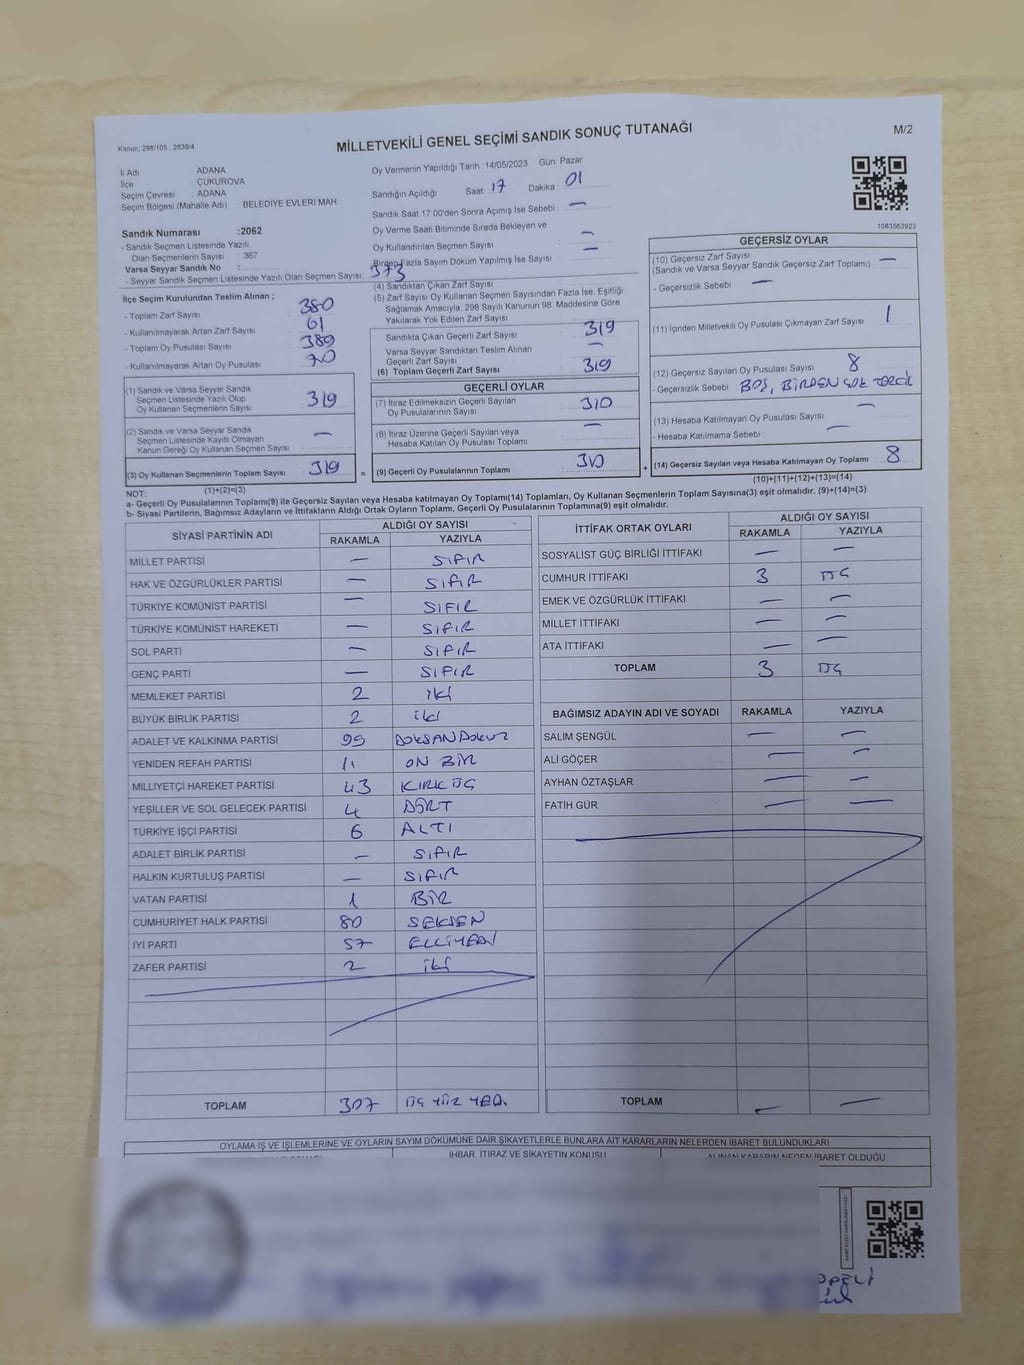 Kanun: 298/105 , 2839/4
MİLLETVEKİLİ GENEL SEÇİMİ SANDIK SONUÇ TUTANAĞI
M/2
İl Adı : ADANA
İlçe : ÇUKUROVA
Seçim Çevresi : ADANA
Seçim Bölgesi (Mahalle Adı) BELEDİYE EVLERİ MAH
Sandık Numarası :2062
- Sandık Seçmen Listesinde Yazılı
Olan Seçmenlerin Sayısı : 367
Varsa Seyyar Sandık No :
- Seyyar Sandık Seçmen Listesinde Yazılı Olan Seçmen Sayısı:
Oy Vermenin Yapıldığı Tarih :14/05/2023 Gün: Pazar
Sandığın Açıldığı Saat 17 Dakika 01
Sandık Saat 17:00'den Sonra Açımış İse Sebebi : —
Oy Verme Saati Bitiminde Sırada Bekleyen ve
Oy Kullandırılan Seçmen Sayısı —
Birden Fazla Sayım Döküm Yapılmış İse Sayısı —
373
1083563923
İlçe Seçim Kurulundan Teslim Alınan ;
- Toplam Zarf Sayısı 380
- Kullanılmayarak Artan Zarf Sayısı 61
- Toplam Oy Pusulası Sayısı 389
- Kullanılmayarak Artan Oy Pusulası 70
(1) Sandık ve Varsa Seyyar Sandık
Seçmen Listesinde Yazılı Olup
Oy Kullanan Seçmenlerin Sayısı 319
(2) Sandık ve Varsa Seyyar Sandık
Seçmen Listesinde Kayıtlı Olmayan
Kanun Gereği Oy Kullanan Seçmen Sayısı —
(3) Oy Kullanan Seçmenlerin Toplam Sayısı 319
(1)+(2)=(3)
(4) Sandıktan Çıkan Zarf Sayısı
(5) Zarf Sayısı Oy Kullanan Seçmen Sayısından Fazla İse, Eşitliği
Sağlamak Amacıyla; 298 Sayılı Kanunun 98. Maddesine Göre
Yakılarak Yok Edilen Zarf Sayısı
Sandıkta Çıkan Geçerli Zarf Sayısı 319
Varsa Seyyar Sandıktan Teslim Alınan
Geçerli Zarf Sayısı —
(6) Toplam Geçerli Zarf Sayısı 319
GEÇERLİ OYLAR
(7) İtiraz Edilmeksizin Geçerli Sayılan
Oy Pusulalarının Sayısı 310
(8) İtiraz Üzerine Geçerli Sayılan veya
Hesaba Katılan Oy Pusulası Toplamı —
= (9) Geçerli Oy Pusulalarının Toplamı 310
GEÇERSİZ OYLAR
(10) Geçersiz Zarf Sayısı —
(Sandık ve Varsa Seyyar Sandık Geçersiz Zarf Toplamı)
- Geçersizlik Sebebi —
(11) İçinden Milletvekili Oy Pusulası Çıkmayan Zarf Sayısı 1
(12) Geçersiz Sayılan Oy Pusulası Sayısı 8
- Geçersizlik Sebebi BOŞ, BİRDEN ÇOK TERCİH
(13) Hesaba Katılmayan Oy Pusulası Sayısı —
- Hesaba Katılmama Sebebi —
+ (14) Geçersiz Sayılan veya Hesaba Katılmayan Oy Toplamı 8
(10)+(11)+(12)+(13)=(14)
NOT:
a- Geçerli Oy Pusulalarının Toplamı(9) ile Geçersiz Sayılan veya Hesaba katılmayan Oy Toplamı(14) Toplamları, Oy Kullanan Seçmenlerin Toplam Sayısına(3) eşit olmalıdır. (9)+(14)=(3)
b- Siyasi Partilerin, Bağımsız Adayların ve İttifakların Aldığı Ortak Oyların Toplamı, Geçerli Oy Pusulalarının Toplamına(9) eşit olmalıdır.
SİYASİ PARTİNİN ADI ALDIĞI OY SAYISI
RAKAMLA YAZIYLA
MİLLET PARTİSİ — SIFIR
HAK VE ÖZGÜRLÜKLER PARTİSİ — SIFIR
TÜRKİYE KOMÜNİST PARTİSİ — SIFIR
TÜRKİYE KOMÜNİST HAREKETİ — SIFIR
SOL PARTİ — SIFIR
GENÇ PARTİ — SIFIR
MEMLEKET PARTİSİ 2 iki
BÜYÜK BİRLİK PARTİSİ 2 iki
ADALET VE KALKINMA PARTİSİ 99 DOKSAN DOKUZ
YENİDEN REFAH PARTİSİ 11 ON BİR
MİLLİYETÇİ HAREKET PARTİSİ 43 KIRK ÜÇ
YEŞİLLER VE SOL GELECEK PARTİSİ 4 DÖRT
TÜRKİYE İŞÇİ PARTİSİ 6 ALTI
ADALET BİRLİK PARTİSİ — SIFIR
HALKIN KURTULUŞ PARTİSİ — SIFIR
VATAN PARTİSİ 1 BİR
CUMHURİYET HALK PARTİSİ 80 SEKSEN
İYİ PARTİ 57 ELLİ YEDİ
ZAFER PARTİSİ 2 iki
TOPLAM 307 ÜÇ YÜZ YED.
İTTİFAK ORTAK OYLARI ALDIĞI OY SAYISI
RAKAMLA YAZIYLA
SOSYALİST GÜÇ BİRLİĞİ İTTİFAKI — —
CUMHUR İTTİFAKI 3 ÜÇ
EMEK VE ÖZGÜRLÜK İTTİFAKI — —
MİLLET İTTİFAKI — —
ATA İTTİFAKI — —
TOPLAM 3 ÜÇ
BAĞIMSIZ ADAYIN ADI VE SOYADI RAKAMLA YAZIYLA
SALİM ŞENGÜL — —
ALİ GÖÇER — —
AYHAN ÖZTAŞLAR — —
FATİH GÜR — —
TOPLAM — —
OYLAMA İŞ VE İŞLEMLERİNE VE OYLARIN SAYIM DÖKÜMÜNE DAİR ŞİKAYETLERLE BUNLARA AİT KARARLARIN NELERDEN İBARET BULUNDUKLARI
İHBAR, İTİRAZ VE ŞİKAYETİN KONUSU ALINAN KARARIN NEDEN İBARET OLDUĞU